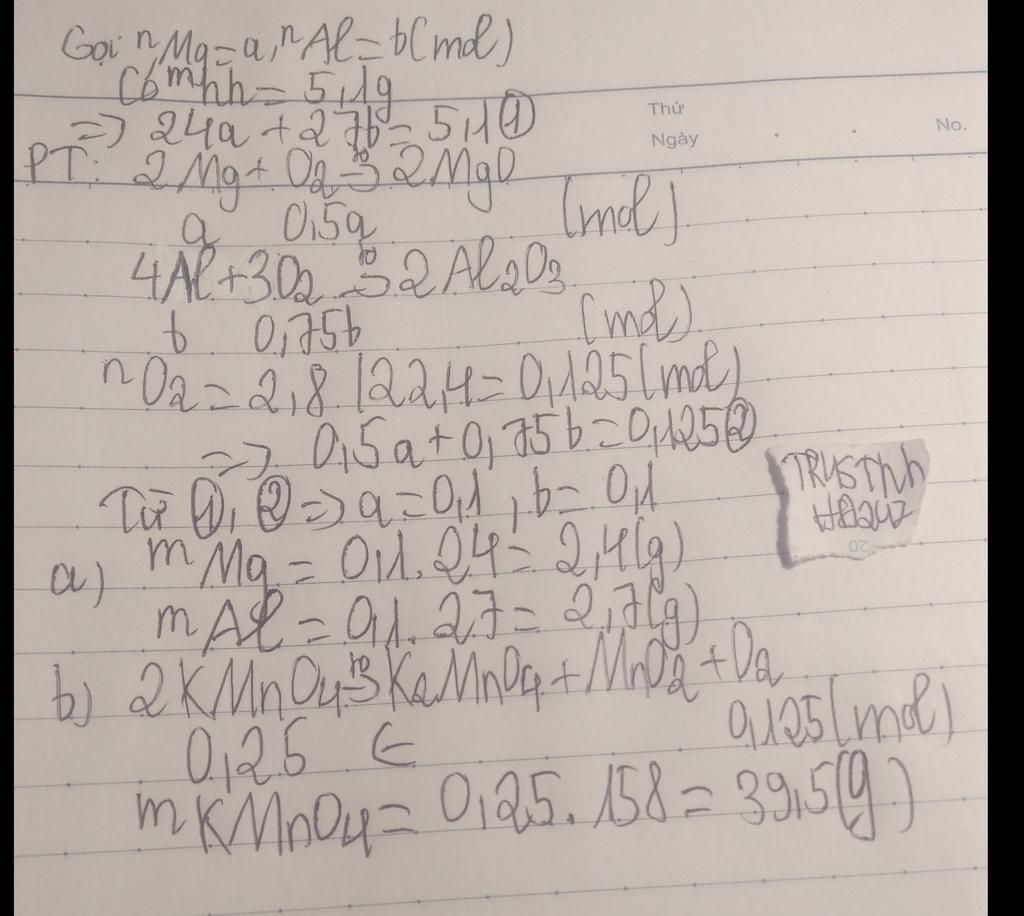 Gọi nMg=a, nAl=b(mol)
Có mhh=5,1g
=> 24a+27b=5,1 (1)
Thứ
Ngày
No.
PT: 2Mg+O2 to→ 2MgO
a 0,5a (mol)
4Al+3O2 to→ 2Al2O3
b 0,75b (mol)
nO2=2,8/22,4=0,125(mol)
=> 0,5a+0,75b=0,125 (2)
Từ (1), (2) => a=0,1, b=0,1
a) mMg=0,1.24=2,4(g)
mAl=0,1.27=2,7(g)
b) 2KMnO4 to→ K2MnO4+MnO2+O2
0,25 ← 0,125(mol)
mKMnO4=0,25.158=39,5(g)
20